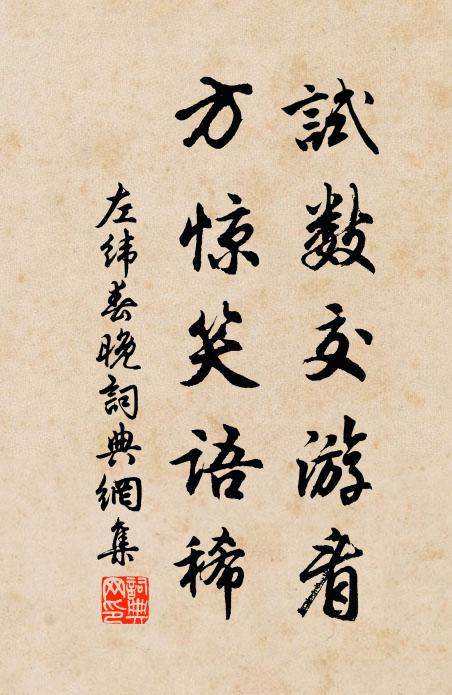 試數交游看
方惊笑语稀
左纬春晚詞典網集
詞典網印